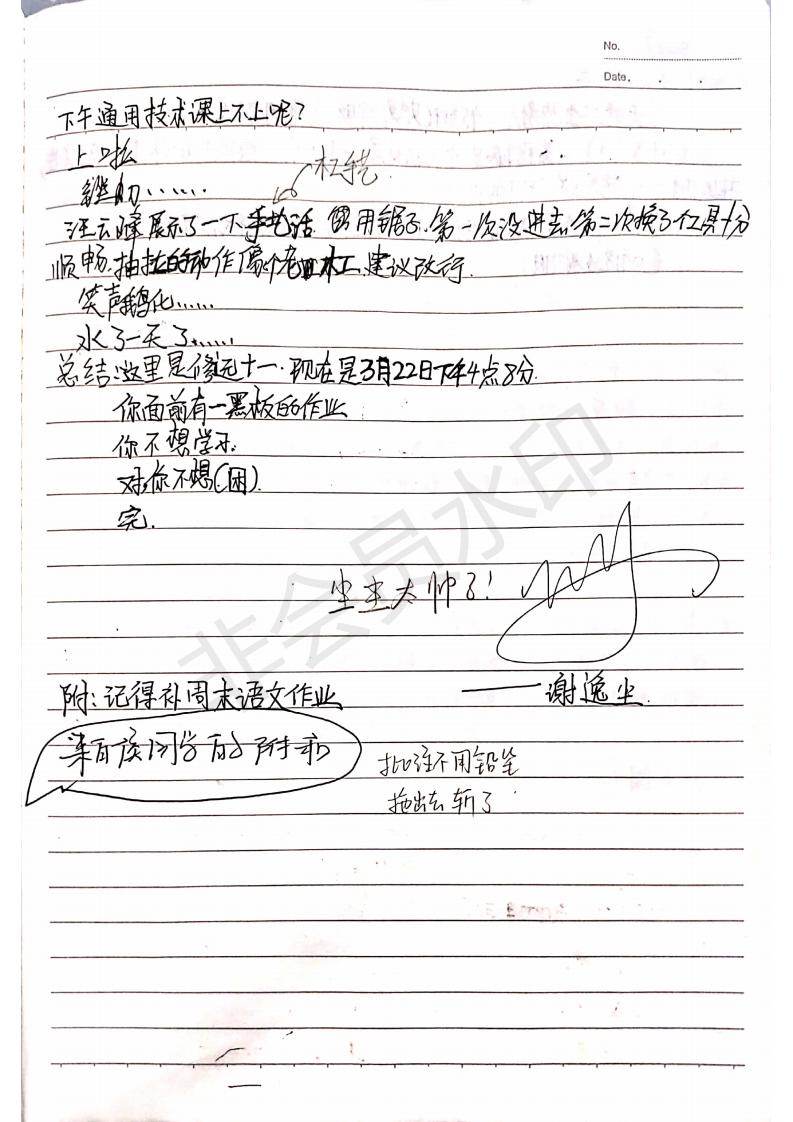 No.
Date.
下午通用技术课上不上呢？
上啦
木工钱
汪云峰展示了一下手艺活 用锯子.第一次没进去.第二次换了个工具十分
顺畅.抽拉的动作像个老木工.建议改行.
笑声鹅化……
水了一天了……
总结:这里是修远十一.现在是3月22日下午4点8分.
你面前有一黑板的作业
你不想学习.
对你不想(困).
完.
尘尘太帅了!
附:记得补周末语文作业
——谢逸尘.
同学的附和
批注不用铅笔
拖出去斩了
非会员水印